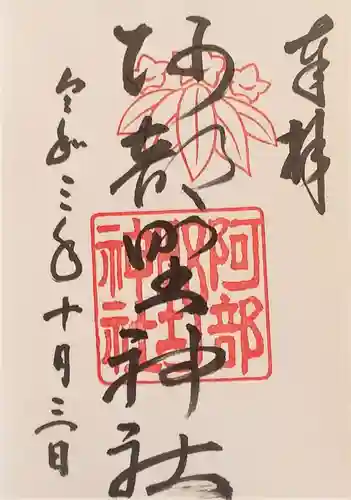 奉拝
阿部野神社
令和三年十月三日
阿部
神社